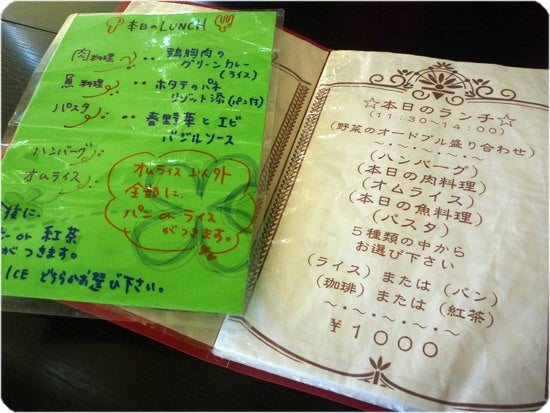 本日のLUNCH
肉料理 ‥ 鶏胸肉の
グリーンカレー
(ライス)
魚料理 ‥ ホタテの
リゾット添(パン付)
パスタ ‥ 春野菜とエビ
バジルソース
ハンバーグ
オムライス
オムライス以外
全部に、
パン or ライス
がつきます。
後に、
or 紅茶
がつきます。
ICE どちらかお選び下さい。
☆本日のランチ☆
(11:30~14:00)
(野菜のオードブル盛り合わせ)
~・~・~・~・~
(ハンバーグ)
(本日の肉料理)
(オムライス)
(本日の魚料理)
(パスタ)
5種類の中から
お選び下さい
(ライス) または (パン)
(珈琲) または (紅茶)
~・~・~・~・~
¥1000